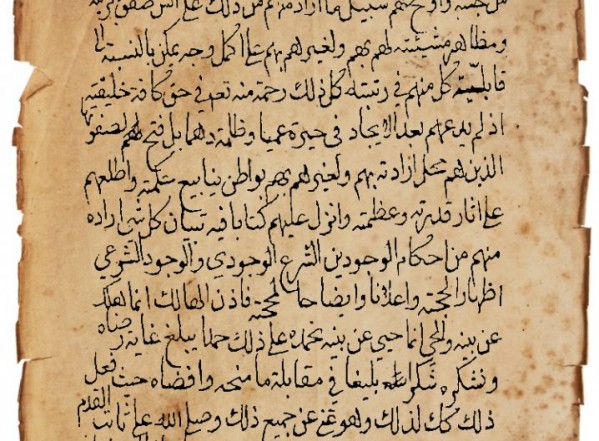 من جنسه واوضح لهم سبيل ما اراد منهم من ذلك على السن صفوة بريته
ومظاهر مشيئته لهم بهم ولغيرهم بهم على اكمل وجه يمكن بالنسبة الى
قابلية كل منهم في رتبته كل ذلك رحمة منه تعم في حق كافة خليقته
اذ لم يدعهم بعد الايجاد في حيرة عميا وظلمة دهما بل فتح لهم لصفوة
الذين هم محل ارادته بهم ولغيرهم بهم بواطن ينابيع حكمته واطلعهم
على اثار قدرته وعظمته وانزل عليهم كتابا فيه تبيان كل شي اراده
منهم من احكام الوجودين الشرع الوجودي والوجود الشرعي
اظهارا لحجته واعلانا وايضاحا لمحجته فاذن الهالك انما هلك
عن بينه والحي انما حيي عن بينه نحمده على ذلك حمدا يبلغ غاية رضاه
ونشكره شكرا بليغا في مقابلة ما منحه وافضاه حيث فعل
ذلك كل ذلك وهو غني عن جميع ذلك وصلى الله على ثابت القدم